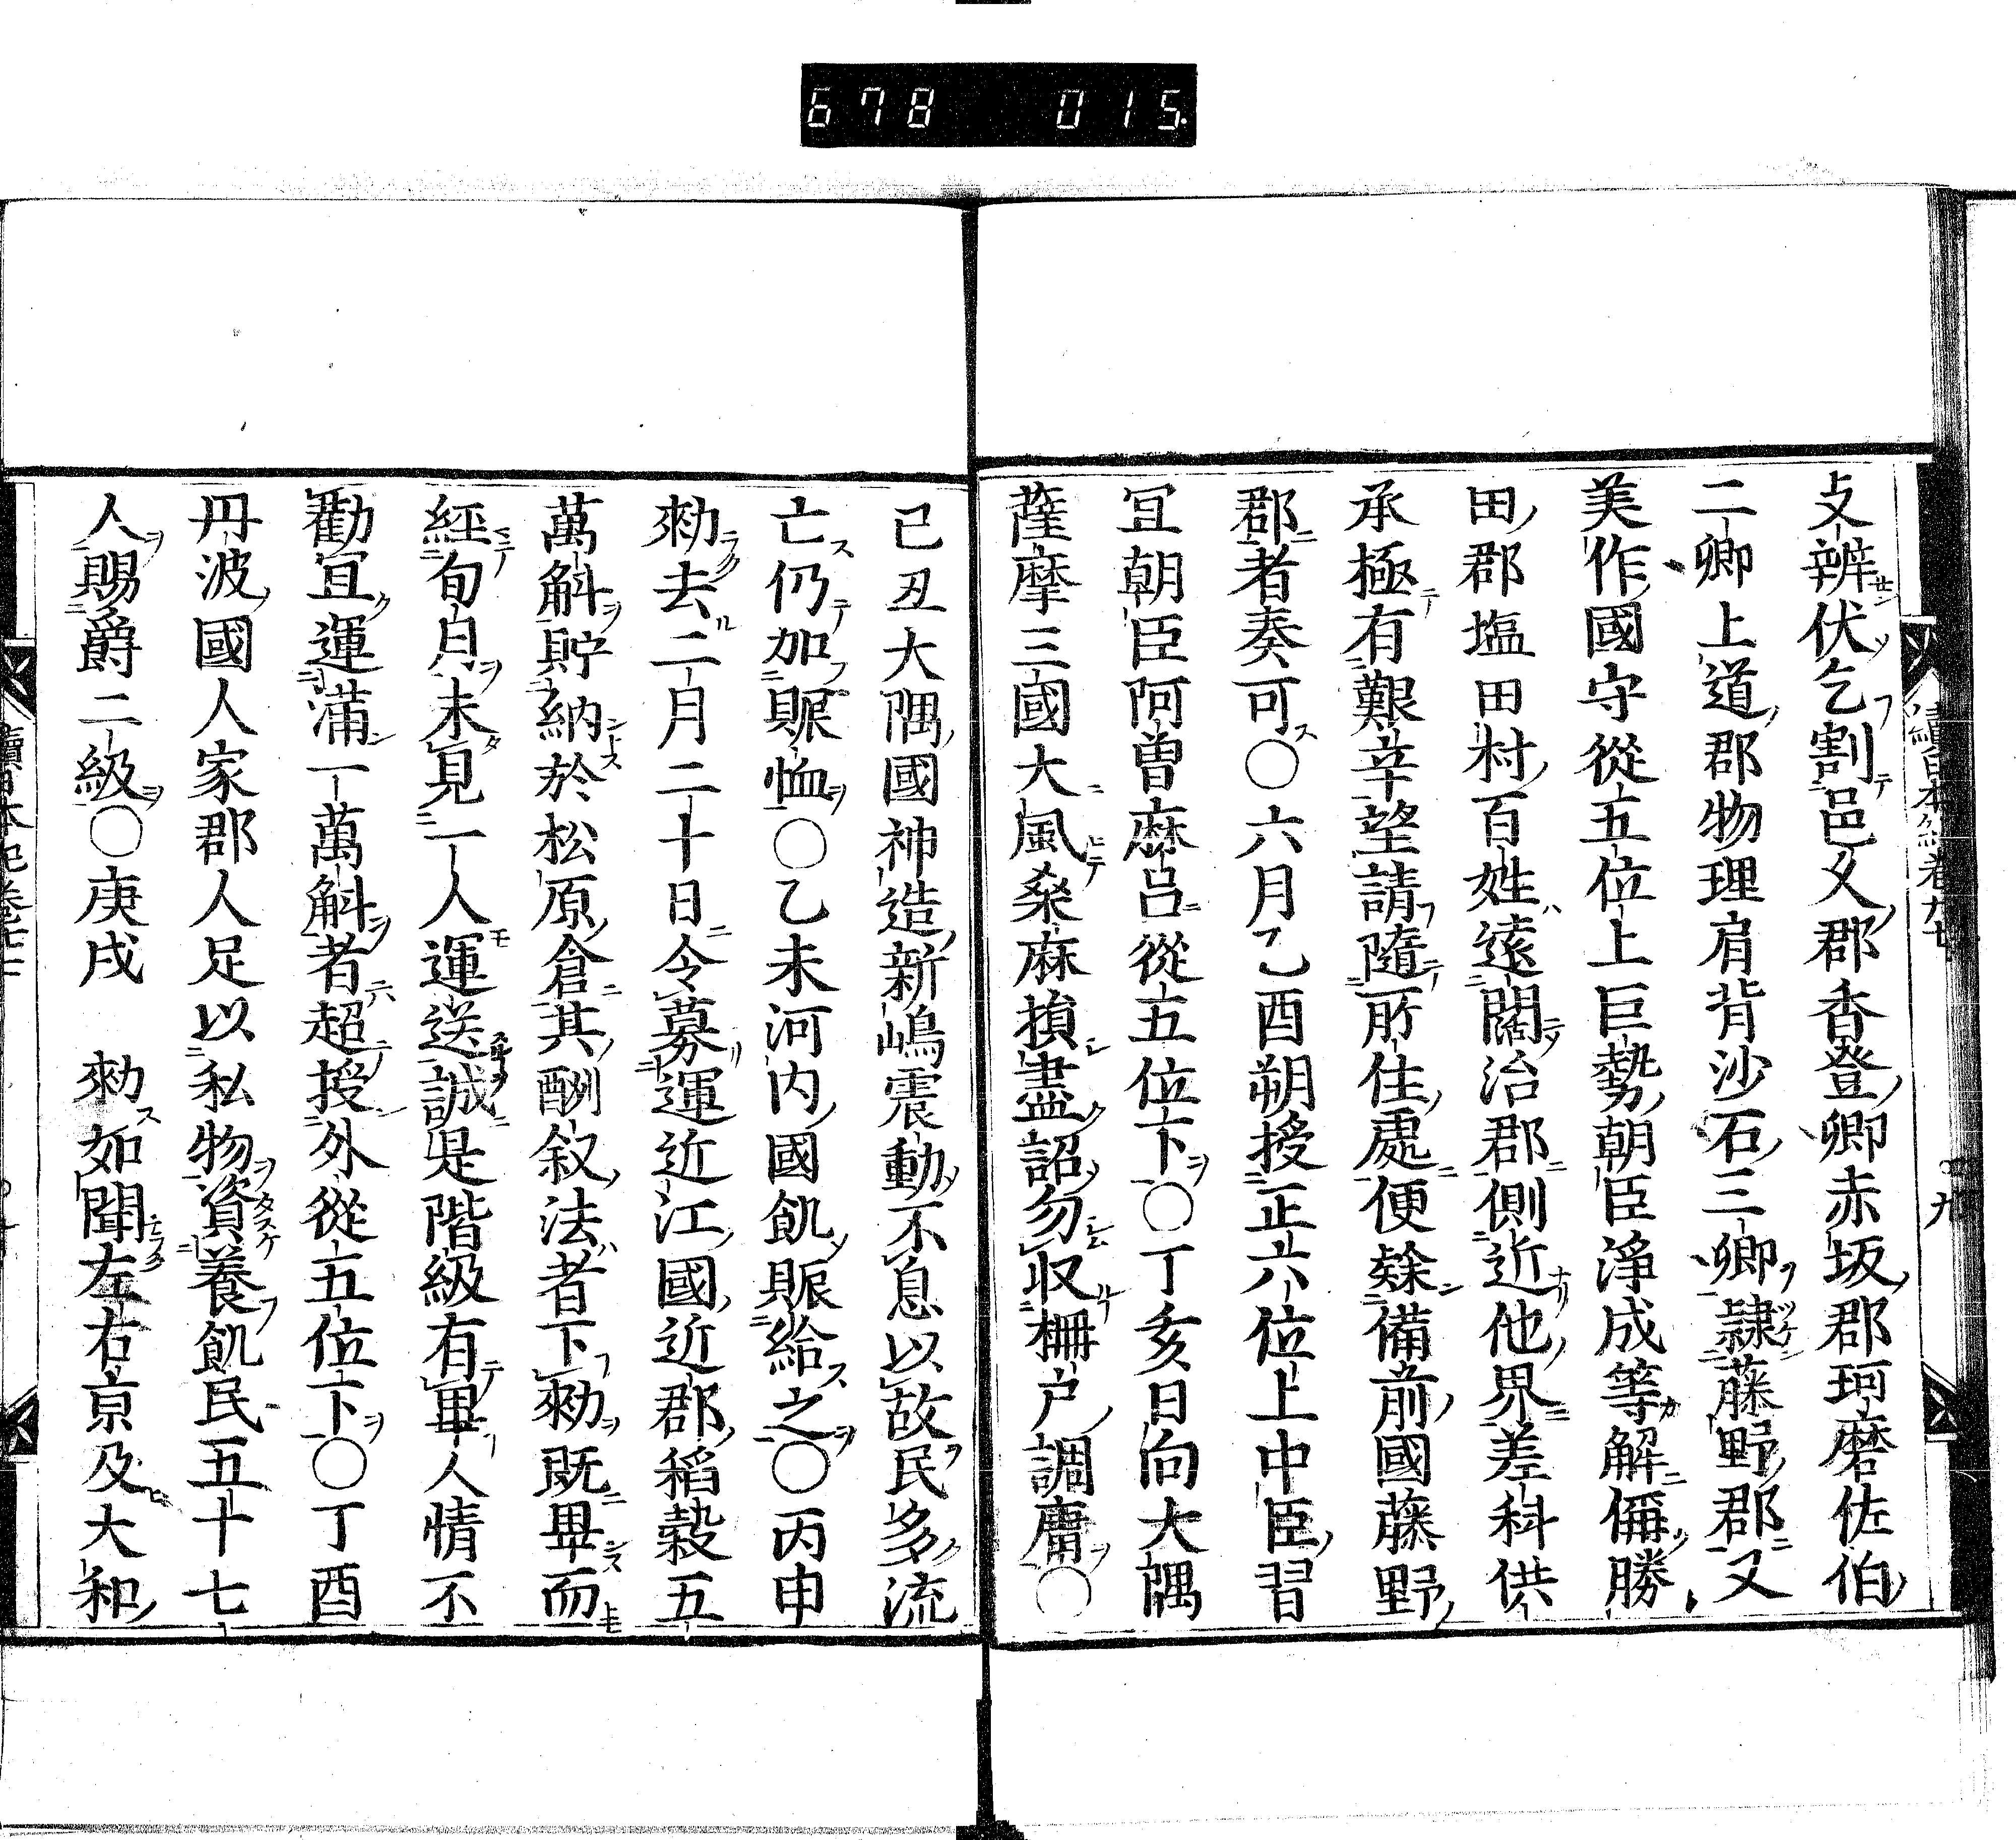 678 015
攴辨伏乞割邑久郡香登卿赤坂郡珂磨佐伯
二卿上道郡物理肩背沙石三卿隷藤野郡又
美作國守從五位上巨勢朝臣淨成等解偁勝
田郡塩田村百姓遠闊治郡側近他界差科供
承極有艱辛望請隨所住處便隸備前國藤野
郡者奏可〇六月乙酉朔授正六位上中臣習
冝朝臣阿曽麻呂從五位下〇丁亥日向大隅
薩摩三國大風桒麻損盡詔勿収柵戸調庸〇
己丑大隅國神造新嶋震動不息以故民多流
亡仍加賑恤〇乙未河内國飢賑給之〇丙申
勑去二月二十日令募運近江國近郡稻穀五
萬斛貯納於松原倉其酬叙法者下勑既畢而
經旬月未見一人運送誠是階級有卑人情不
勸冝運滿一萬斛者超授外從五位下〇丁酉
丹波國人家郡人足以私物資養飢民五十七
人賜爵二級〇庚戌　勑如聞左右京及大和